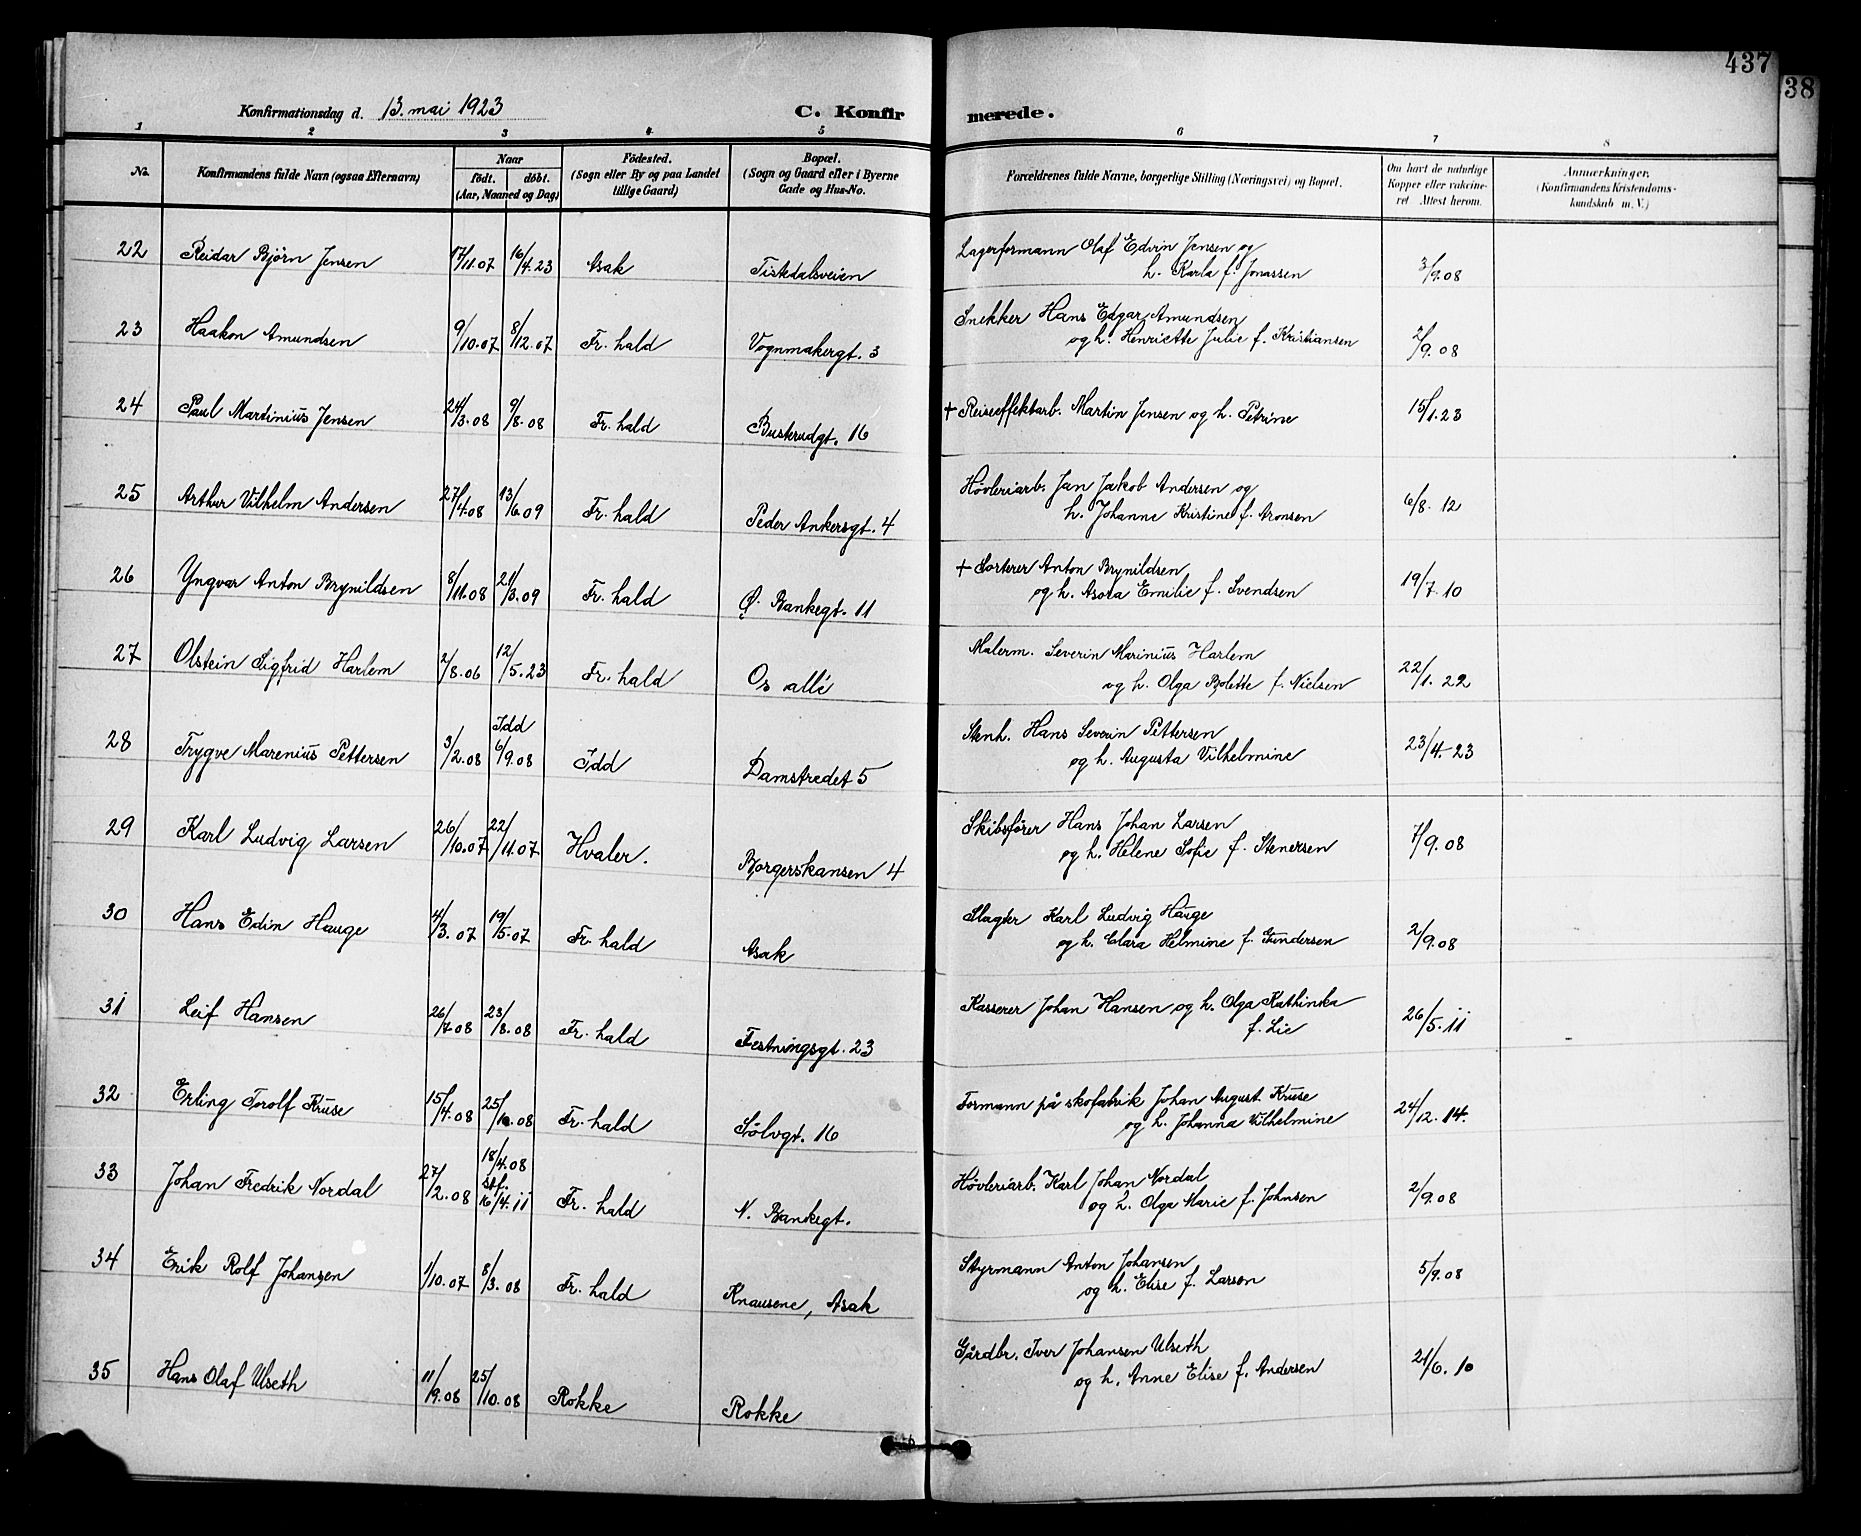 437
38
Konfirmationsdag d. 13. mai 1923
C. Konfirmerede.
1 2 3 4 5 6 7 8
No.
Konfirmandens fulde Navn (ogsaa Efternavn)
Naar
født. døbt.
(Aar, Maaned og Dag)
Fødested.
(Sogn eller By og paa Landet
tillige Gaard)
Bopæl.
(Sogn og Gaard eller i Byerne
Gade og Hus-No.
Forældrenes fulde Navne, borgerlige Stilling (Næringsvei) og Bopæl.
Om havt de naturlige
Kopper eller vakcine-
ret. Attest herom.
Anmærkninger.
(Konfirmandens Kristendoms-
kundskab m. V.)
22 Reidar Bjørn Jensen 17/11.07 16/4.23 Asak Tistedalsveien Lagerformann Olaf Edvin Jensen og
h. Karla f. Jonassen 3/9.08
23 Haakon Amundsen 9/10.07 8/12.07 Fr. hald Vognmakergt. 3 Snekker Hans Edgar Amundsen
og h. Henriette Julie f. Kristiansen 2/9.08
24 Paul Martinius Jensen 24/3.08 9/8.08 Fr. hald Buskrudgt. 16 + Reiseeffektarb. Martin Jensen og h. Petrine 15/1.23
25 Arthur Vilhelm Andersen 27/4.08 13/6.09 Fr. hald Peder Ankersgt. 4 Høvleriarb. Jan Jakob Andersen og
h. Johanne Kristine f. Aronsen 6/8.12
26 Yngvar Anton Brynildsen 8/11.08 21/3.09 Fr. hald Ø. Bankegt. 11 + Sorterer Anton Brynildsen
og h. Asora Emilie f. Svendsen 19/7.10
27 Olstein Sigfrid Harlem 2/8.06 12/5.23 Fr. hald Os allé Malerm. Severin Marinius Harlem
og h. Olga Bolette f. Nielsen 22/1.22
28 Trygve Marenius Pettersen 3/2.08 Idd 6/9.08 Idd Damstredet 5 Stenh. Hans Severin Pettersen
og h. Augusta Vilhelmine 23/4.23
29 Karl Ludvig Larsen 26/10.07 22/11.07 Hvaler. Borgerskansen 4 Skibsfører Hans Johan Larsen
og h. Helene Sofie f. Stenersen 7/9.08
30 Hans Edin Hauge 4/3.07 19/5.07 Fr. hald Asak Slagter Karl Ludvig Hauge
og h. Clara Helmine f. Gundersen 2/9.08
31 Leif Hansen 26/7.08 23/8.08 Fr. hald Festningsgt. 23 Kasserer Johan Hansen og h. Olga Kathinka
f. Lie 26/5.11
32 Erling Torolf Kruse 15/4.08 25/10.08 Fr. hald Sølvgt. 16 Formann på skofabrik Johan August Kruse
og h. Johanna Vilhelmine 24/12.14.
33 Johan Fredrik Nordal 27/2.08 18/4.08 stf. 16/4.11 Fr. hald N. Bankegt. Høvleriarb. Karl Johan Nordal
og h. Olga Marie f. Johnsen 2/9.08
34 Erik Rolf Johansen 1/10.07 8/3.08 Fr. hald Knausene, Asak Styrmann Anton Johansen
og h. Elise f. Larsen 5/9.08
35 Hans Olaf Ulseth 11/9.08 25/10.08 Rokke Rokke Gårdbr. Iver Johansen Ulseth
og h. Anne Elise f. Andersen 21/6.10